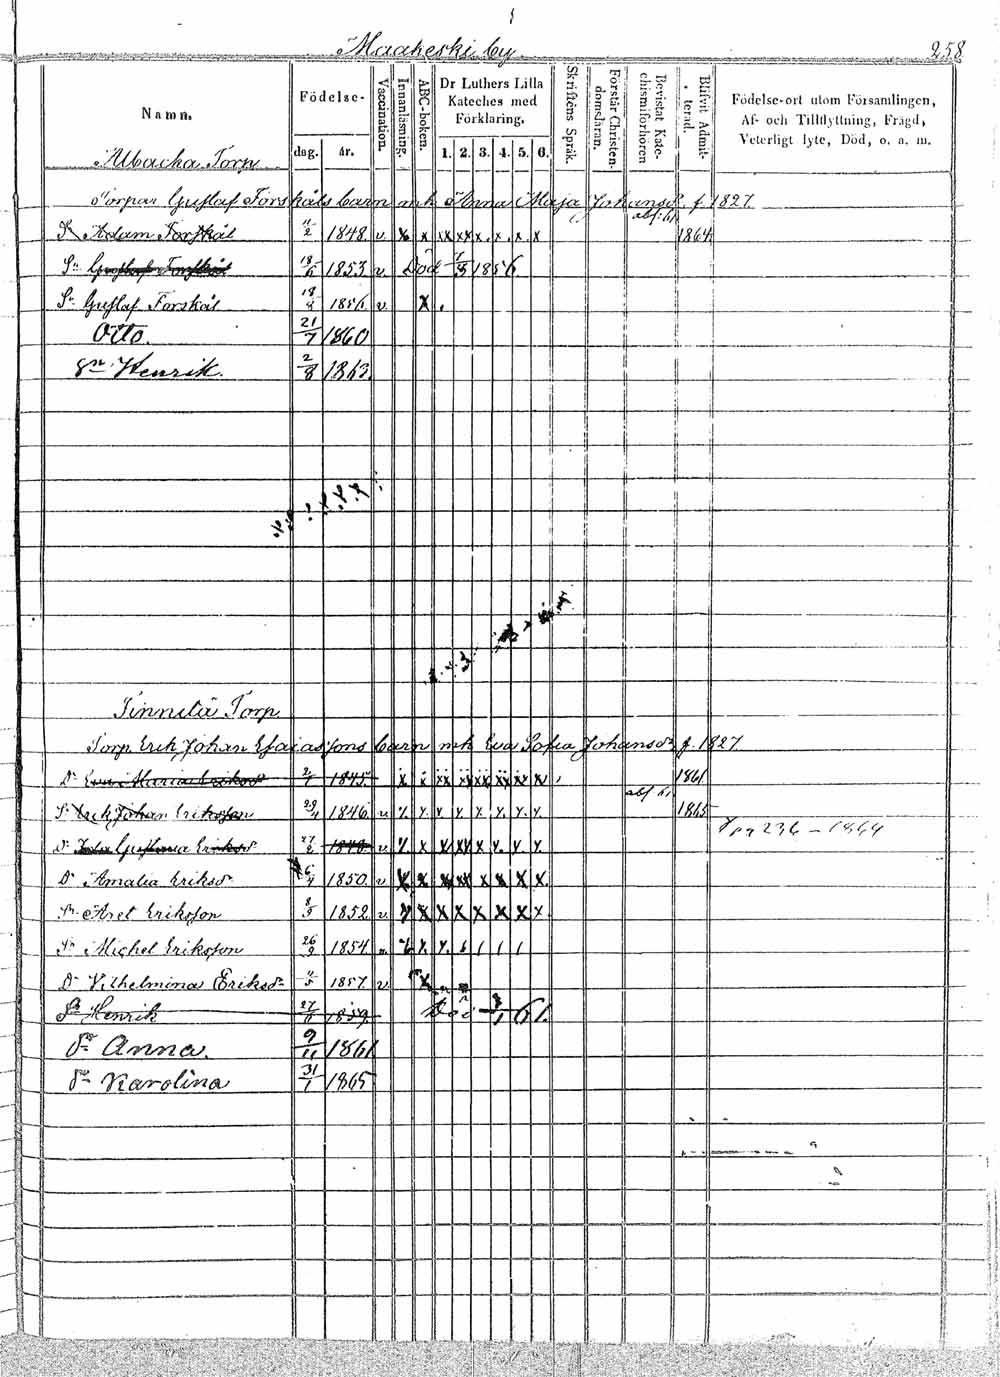 Maaheski by 258
Namn. Födelse- dag. år. Vaccination. Innanläsning. ABC-boken. Dr Luthers Lilla Kateches med Förklaring. 1. 2. 3. 4. 5. 6. Skriftens Språk. Förstår Christendomsläran. Bevistat Katechismiförhören Blifvit Admitterad. Födelse-ort utom Församlingen, Af- och Tillflyttning, Frägd, Veterligt lyte, Död, o. a. m.
Torp
Torpar Gustaf Forskåls barn mh Anna Maja Johansd. f. 1827.
Adam Forskål 1848. v. x x xx xx x. x. x. x 1864.
Sn Gustaf Forskål 1853 v. Död 1856.
Sn Gustaf Forskål 1856. v. x
Otto. 21/7 1860
Sn Henrik. 2/8 1863.
Torp
Torp. Erik Johan Esaiassons barn mh Eva Sofia Johansd. f. 1827
Dr Eva Maria Eriksd 1845. 1861.
Sn Erik Johan Eriksson 1846. v. 1865
236 – 1864
Dr Gustava Eriksd 1848. v.
Dr Amalia Eriksd 1850. v. x x x x x x.
Sn Axel Eriksson 8/9 1852. v. x x x x x x x
Sn Michel Eriksson 26/9 1854.
Dr Vilhelmina Eriksd 1857. v. x
Sn Henrik 1859. Död 61.
Dr Anna. 9/11 1861
Dr Karolina 31/1 1865